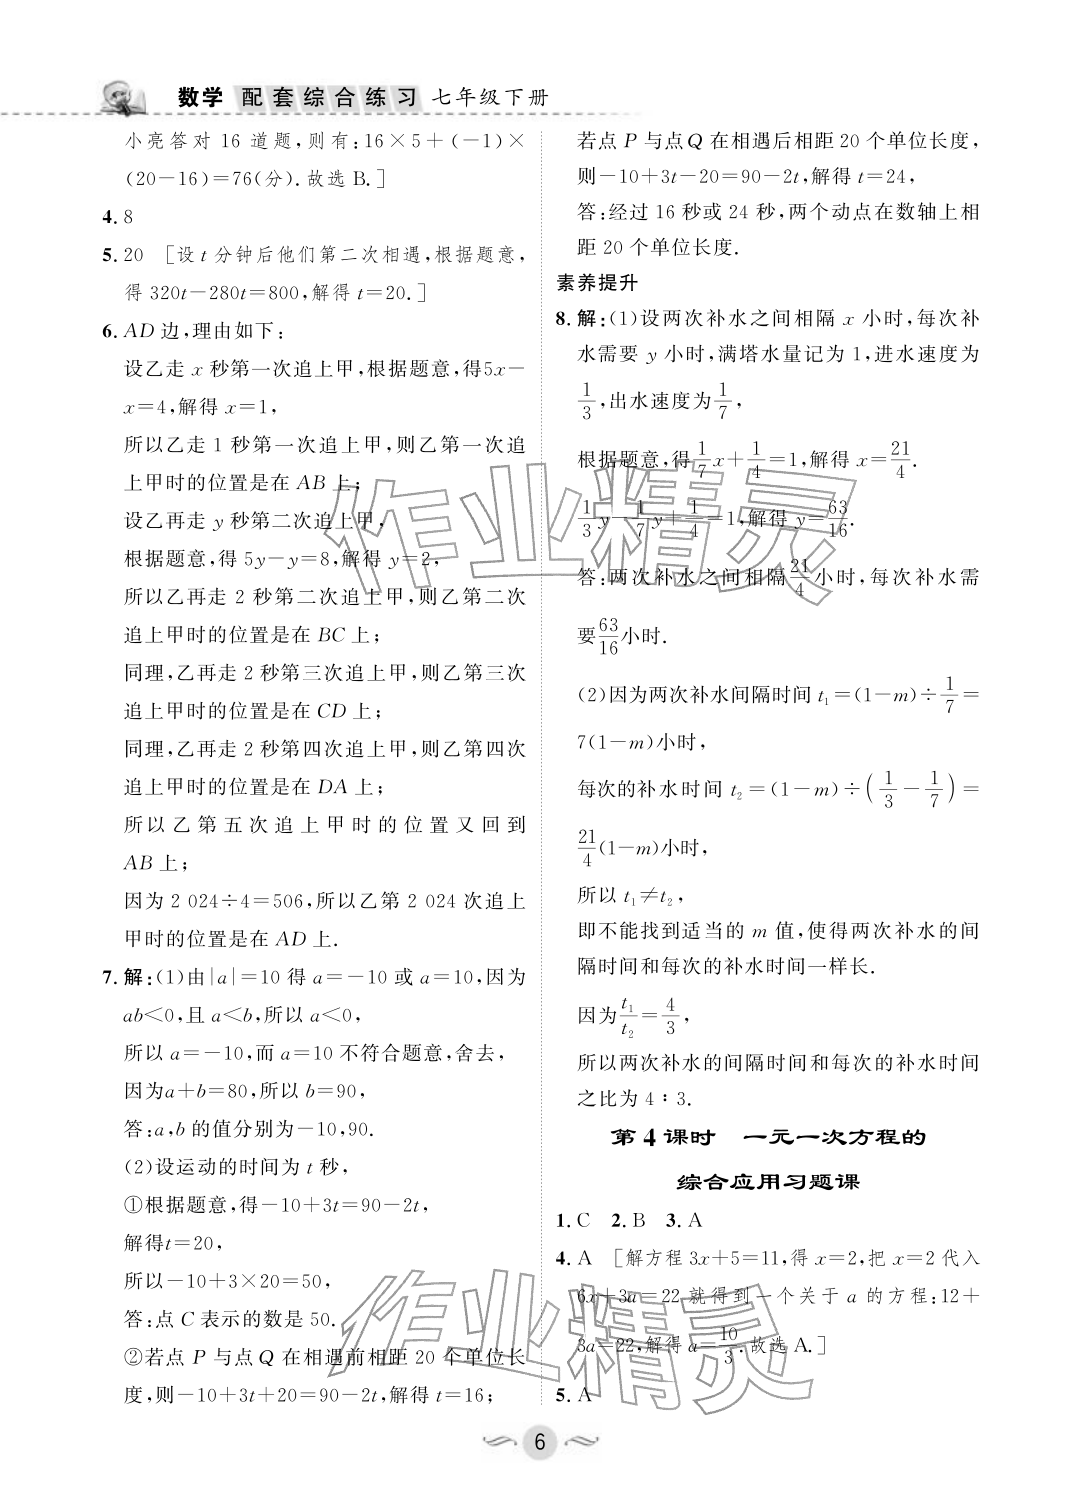 数学 配套综合练习 七年级下册
小亮答对 16 道题,则有:16×5+(-1)×
(20-16)=76(分).故选 B.]
4. 8
5. 20 [设 t 分钟后他们第二次相遇,根据题意,
得 320t-280t=800,解得 t=20.]
6. AD 边,理由如下:
设乙走 x 秒第一次追上甲,根据题意,得5x-
x=4,解得 x=1,
所以乙走 1 秒第一次追上甲,则乙第一次追
上甲时的位置是在 AB 上;
设乙再走 y 秒第二次追上甲,
根据题意,得 5y-y=8,解得 y=2,
所以乙再走 2 秒第二次追上甲,则乙第二次
追上甲时的位置是在 BC 上;
同理,乙再走 2 秒第三次追上甲,则乙第三次
追上甲时的位置是在 CD 上;
同理,乙再走 2 秒第四次追上甲,则乙第四次
追上甲时的位置是在 DA 上;
所以乙第五次追上甲时的位置又回到
AB 上;
因为 2 024÷4=506,所以乙第 2 024 次追上
甲时的位置是在 AD 上.
7. 解:(1)由|a|=10 得 a=-10 或 a=10,因为
ab<0,且 a<b,所以 a<0,
所以 a=-10,而 a=10 不符合题意,舍去,
因为a+b=80,所以 b=90,
答:a,b 的值分别为-10,90.
(2)设运动的时间为 t 秒,
①根据题意,得-10+3t=90-2t,
解得t=20,
所以-10+3×20=50,
答:点 C 表示的数是 50.
②若点 P 与点 Q 在相遇前相距 20 个单位长
度,则-10+3t+20=90-2t,解得 t=16;
若点 P 与点Q 在相遇后相距 20 个单位长度,
则-10+3t-20=90-2t,解得 t=24,
答:经过 16 秒或 24 秒,两个动点在数轴上相
距 20 个单位长度.
素养提升
8. 解:(1)设两次补水之间相隔 x 小时,每次补
水需要 y 小时,满塔水量记为 1,进水速度为
1/3,出水速度为1/7,
根据题意,得1/7x+1/4=1,解得 x=21/4.
1/3y-1/7y+1/4=1,解得 y=63/16.
答:两次补水之间相隔21/4小时,每次补水需
要63/16小时.
(2)因为两次补水间隔时间 t₁=(1-m)÷1/7=
7(1-m)小时,
每次的补水时间 t₂=(1-m)÷(1/3-1/7)=
21/4(1-m)小时,
所以 t₁≠t₂,
即不能找到适当的 m 值,使得两次补水的间
隔时间和每次的补水时间一样长.
因为t₁/t₂=4/3,
所以两次补水的间隔时间和每次的补水时间
之比为 4∶3.
第 4 课时 一元一次方程的
综合应用习题课
1. C 2. B 3. A
4. A [解方程 3x+5=11,得 x=2,把 x=2 代入
6x+3a=22,就得到一个关于 a 的方程:12+
3a=22,解得 a=10/3.故选 A.]
5. A
6
作业精灵
作业精灵